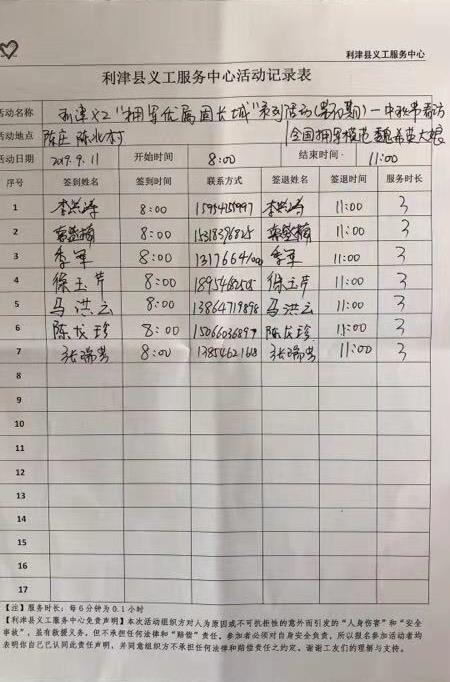 利津县义工服务中心
利津县义工服务中心活动记录表
活动名称 利津义工“拥军优属固长城”系列活动(第四期)一中秋节看访
活动地点 陈庄 陈北村 全国拥军模范 魏希英大娘
活动日期 2019.9.11 开始时间 8:00 结束时间 11:00
序号 签到姓名 签到时间 联系方式 签退姓名 签退时间 服务时长
1 8:00 11:00 3
2 8:00 11:00 3
3 季军 8:00 季军 11:00 3
4 徐玉芹 8:00 徐玉芹 11:00 3
5 马洪云 8:00 13864719898 马洪云 11:00 3
6 陈龙珍 8:00 15066036899 陈龙珍 11:00 3
7 张瑞芳 8:00 张瑞芳 11:00 3
8
9
10
11
12
13
14
15
16
17
【注】服务时长：每6分钟为0.1小时
【利津县义工服务中心免责声明】本次活动组织方对人为原因或不可抗拒性的意外而引发的“人身伤害”和“安全
事故”，虽有救援义务，但不承担任何法律和“赔偿”责任。参加者必须对自身安全负责，所以报名参加活动者均
表明你自己已认同此责任声明，并同意组织方不承担任何法律和赔偿责任之约定。谢谢工友们的理解与支持。